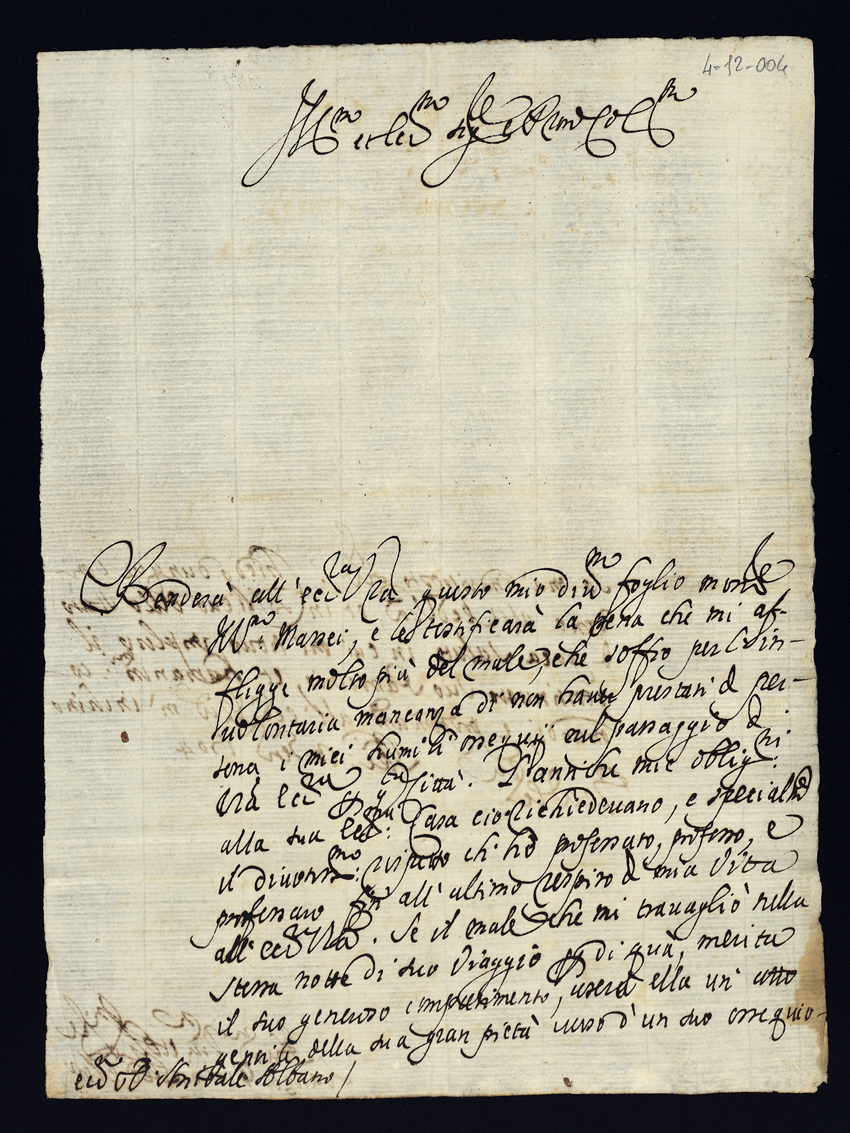 4-12-004
Ill.mo et Ecc.mo Sig.re e Pron Col.mo
Renderà all'Ecc.za V.ra questo mio div.mo foglio mons.re
Ill.mo Mansi, e le testificarà la pena che mi af-
fligge molto più del male, che soffro per l'in-
volontaria mancanza di non haver prestati di per-
sona i miei humil.mi ossequij nel passaggio di
V.ra Ecc.za p q.ta Città. L'antiche mie oblig.ni
alla sua Ecc.ma Casa ciò richiedevano, e special.te
il divotiss.mo rispetto ch'hò professato, professo, e
professarò fin all'ultimo respiro di mia Vita
all'Ecc.za V.ra. Se il male che mi travagliò nella
stessa notte di suo Viaggio p di quà, merita
il suo generoso compatimento, userà ella un' atto
gentile della sua gran pietà verso d'un suo ossequio-
Ecc.mo D. Annibale Albano /